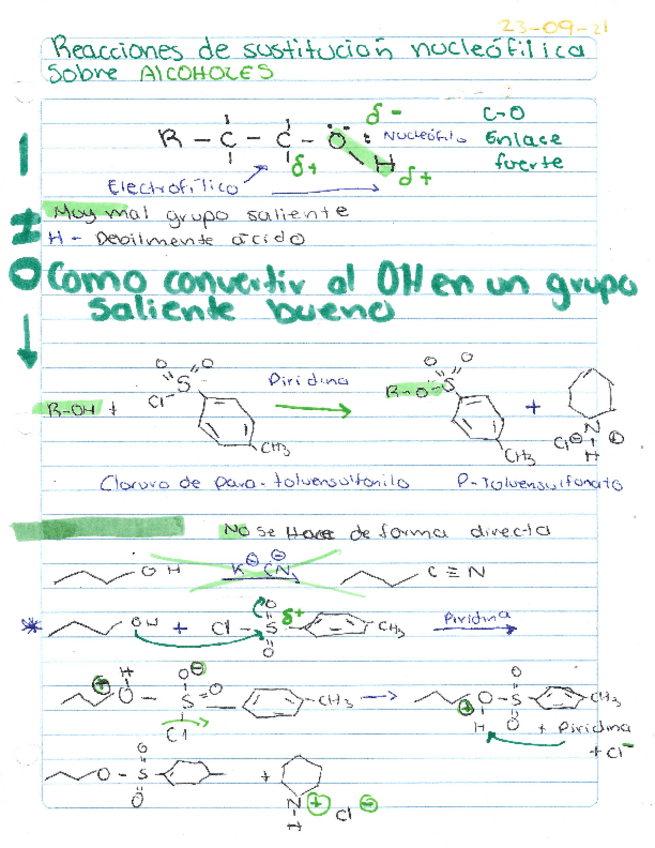 23-09-21
Reacciones de sustitución nucleófilica
Sobre ALCOHOLES
δ-
R - C - C - O : Nucleófilo
H
δ+
δ+
C-O
Enlace
fuerte
Electrofílico
Muy mal grupo saliente
H - Debilmente ácido
Como convertir al OH en un grupo
saliente bueno
R-OH +
Cl
S
O O
CH3
Piridina
R-O-S
O O
CH3
+
N
H
Cl⊖ ⊕
Cloruro de para-toluensulfonilo P-Toluensulfonato
No se Hace de forma directa
OH K⊕ ⊖CN C≡N
* OH + Cl - S δ+ CH3 Piridina
O
O
H
⊕ O - S = O CH3
O⊖
Cl
O - S CH3
⊕
H
O
O
+ Piridina
+ Cl-
O - S
O
O
+
N ⊕ Cl ⊖
H